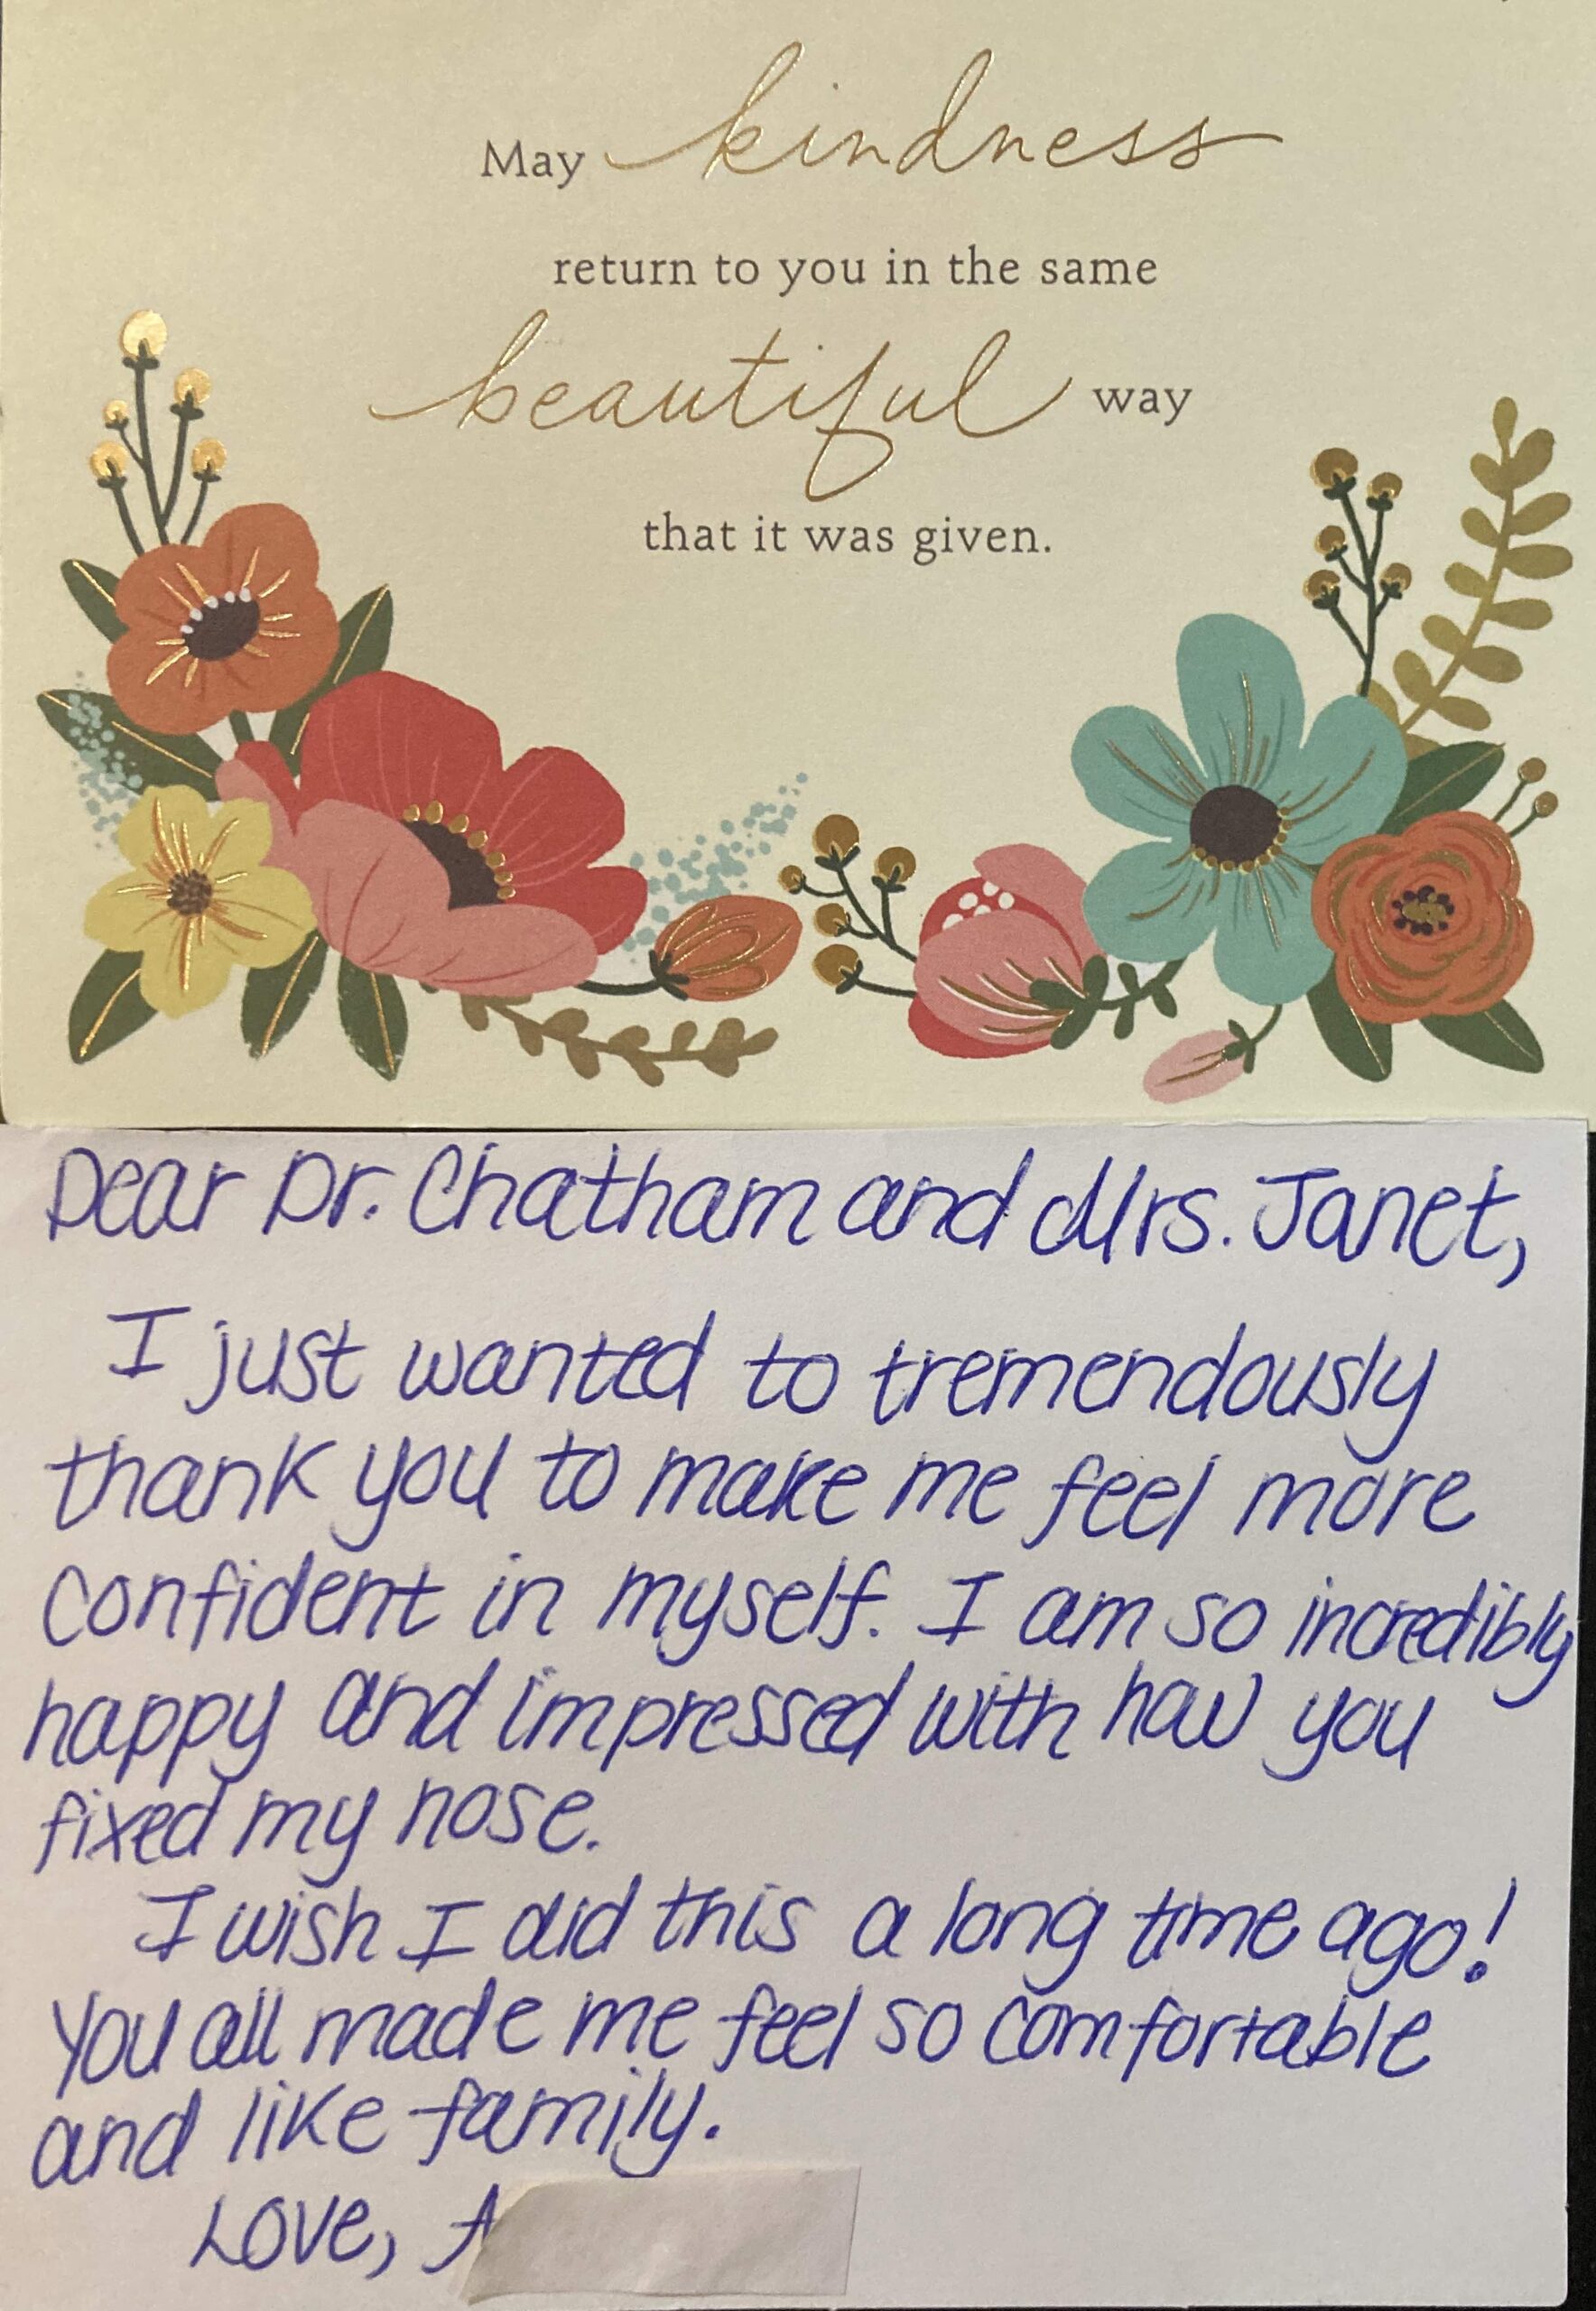 May kindness
return to you in the same
beautiful way
that it was given.
Dear Dr. Chatham and Mrs. Janet,
I just wanted to tremendously
thank you to make me feel more
confident in myself. I am so incredibly
happy and impressed with how you
fixed my nose.
I wish I did this a long time ago!
You all made me feel so comfortable
and like family.
Love, A